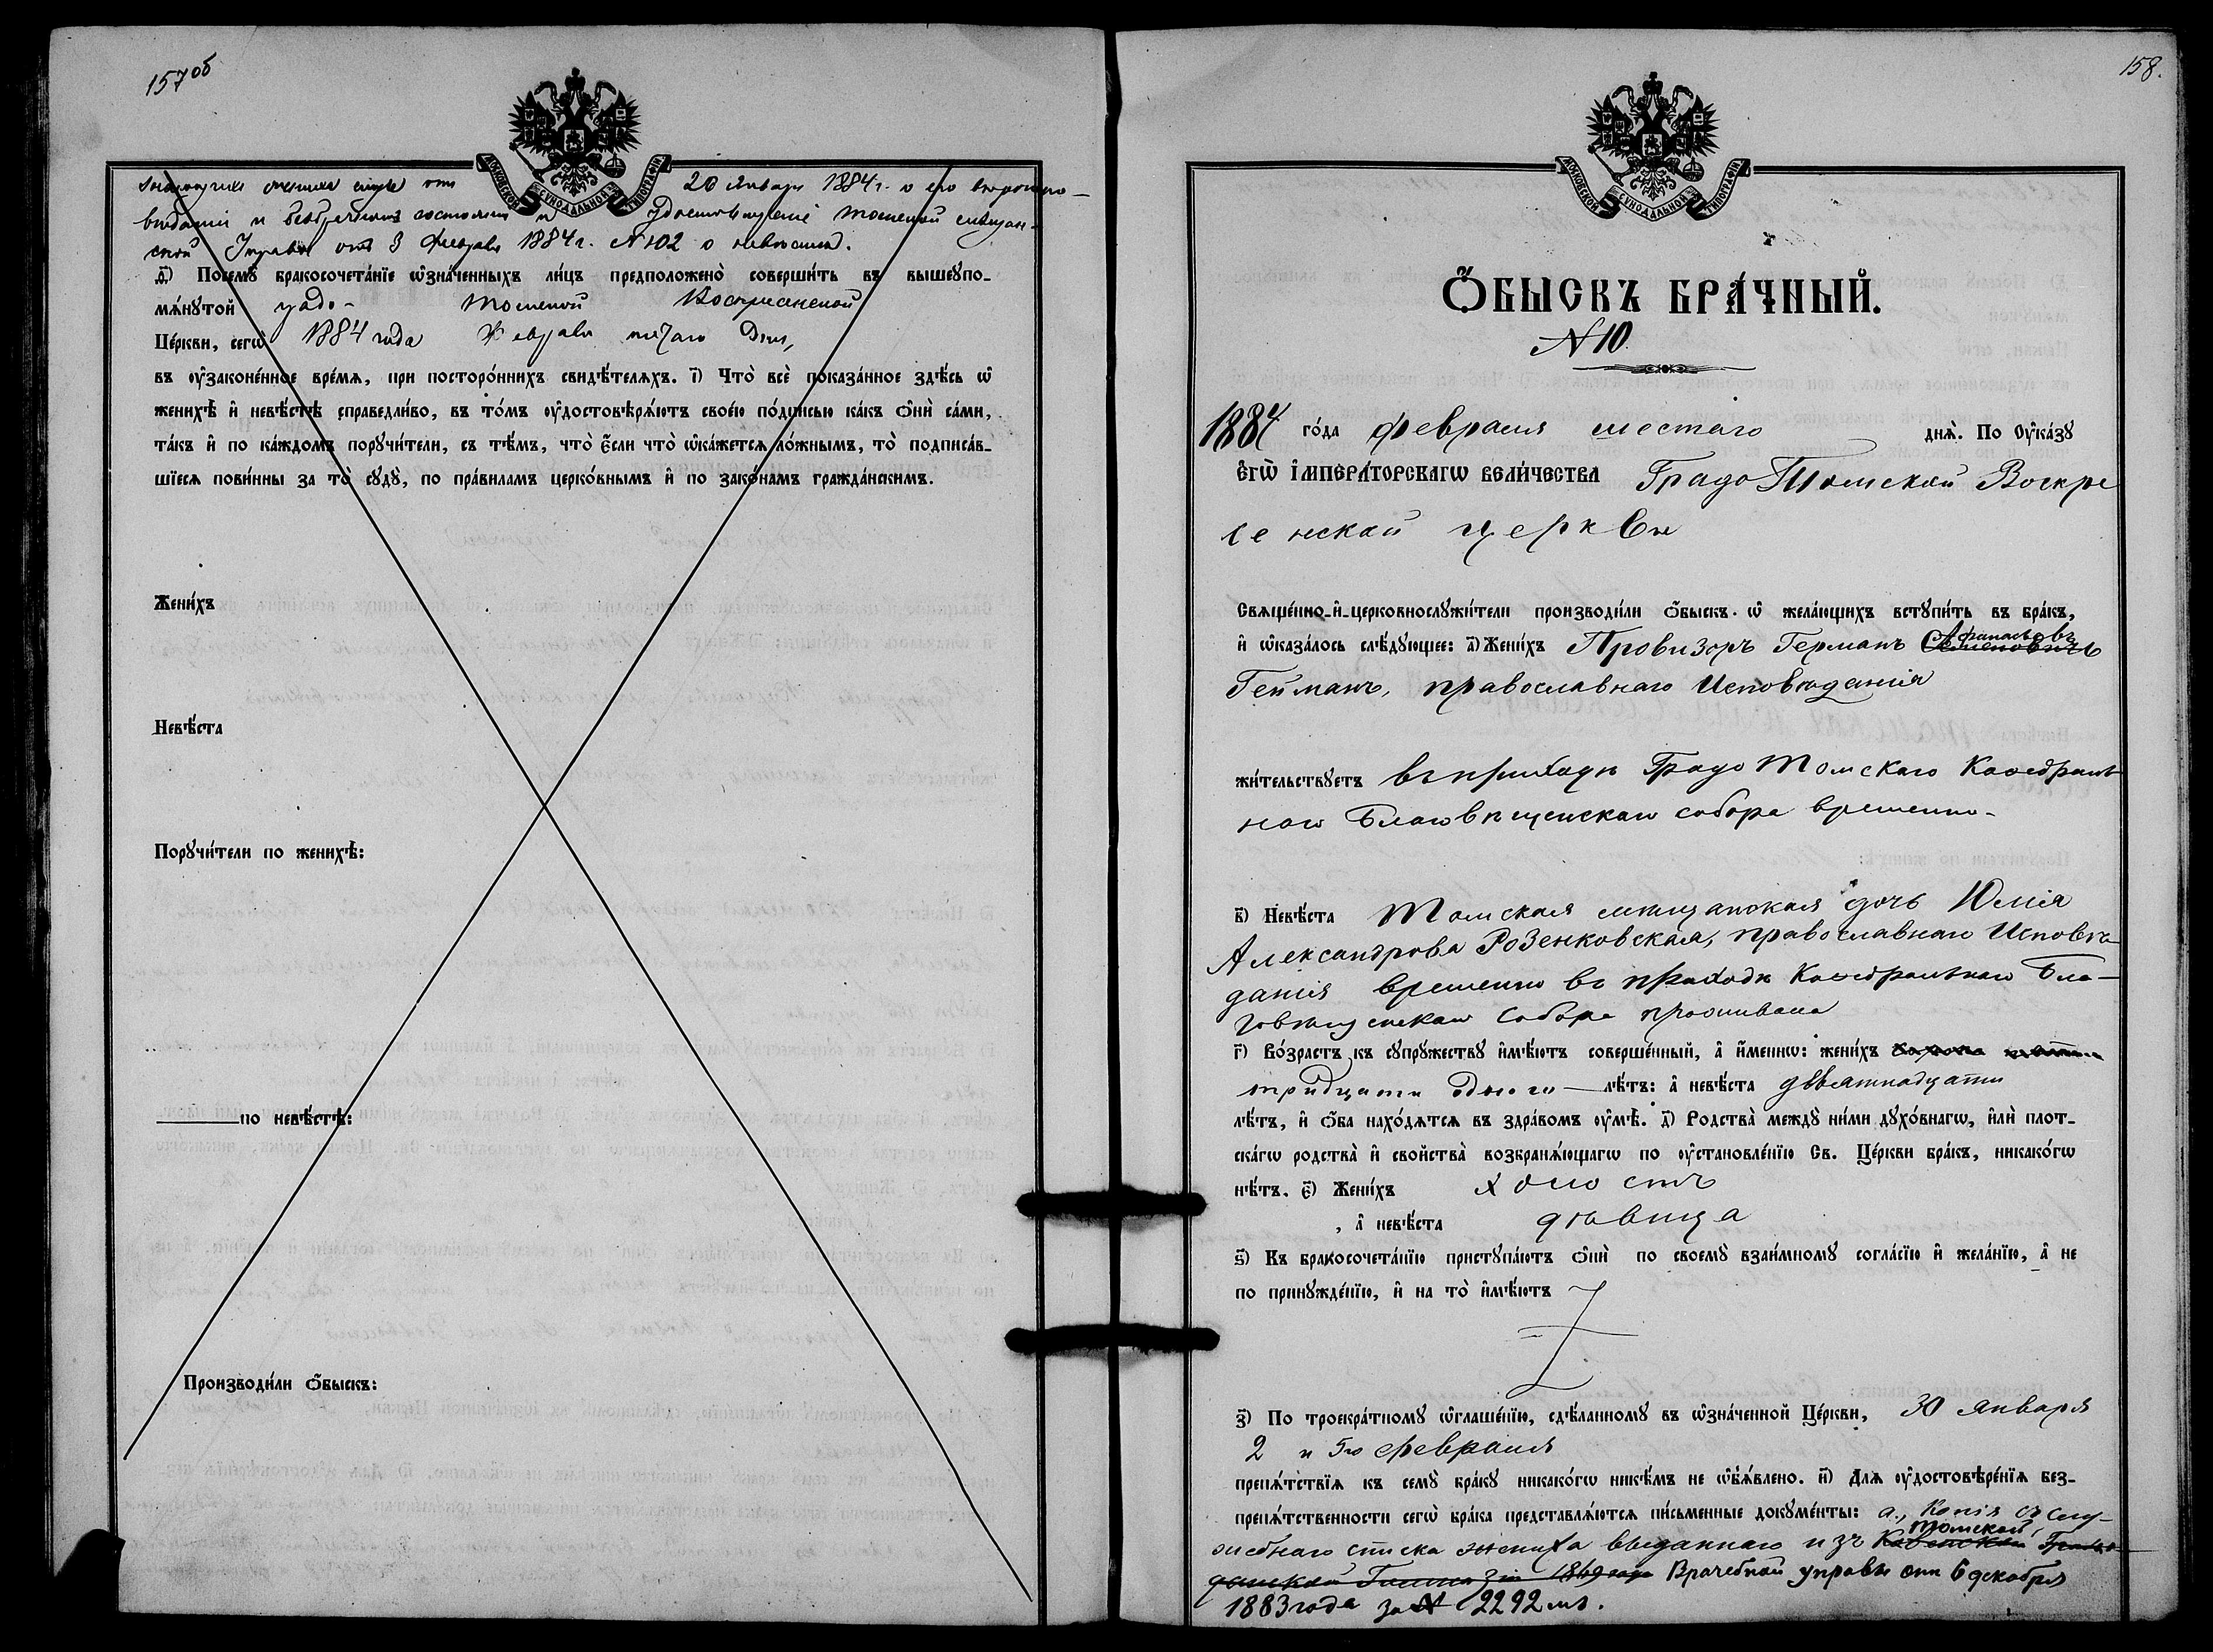 157об
МОСКОВСКОЙ СѴНОДАЛЬНОЙ ТИПОГРАФІИ
20 Января 1884 г. о его вѣроиспо-
вѣданіи и безбрачномъ состояніи и удостовѣреніе Томской мѣщан-
ской Управы отъ 3 Февраля 1884 г. №102 о невѣстѣ.
д҃) Посемꙋ̀ бракосочета́нїе ѡ҆зна́ченныхъ ли́цъ предположено̀ соверши́ть въ вышеꙋпо-
мѧ́нꙋтой градо- Томской Воскресенской
Це́ркви, сегѡ̀ 1884 года Февраля пятаго Дня,
въ ᲂу҆зако́ненное вре́мѧ, при посторо́ннихъ свидѣ́телѧхъ. і҃) Что̀ всѐ пока́занное здѣ́сь ѡ҆
женихѣ̀ и҆ невѣ́стѣ справедли́во, въ то́мъ ᲂу҆достовѣрѧ́ютъ свое́ю по́дписью ка́къ ѻ҆нѝ са́ми,
та́къ и҆ по ка́ждомъ порꙋчи́тели, съ тѣ́мъ, что̀ є҆́сли что̀ ѡ҆ка́жетсѧ ло́жнымъ, то̀ подписа́в-
шїесѧ пови́нны за то̀ сꙋдꙋ̀, по пра́виламъ церко́внымъ и҆ по зако́намъ гражда́нскимъ.
Жени́хъ
Невѣ́ста
Порꙋчи́тели по женихѣ̀:
по невѣ́стѣ:
Производи́ли ѻ҆́быскъ:
158.
МОСКОВСКОЙ СѴНОДАЛЬНОЙ ТИПОГРАФІИ
Ѻ҆́БЫСКЪ БРА́ЧНЫЙ.
№10
1884 го́да февраля шестаго днѧ̀. По Оу҆ка́зꙋ
Є҆ГѠ̀ І҆МПЕРА́ТОРСКАГѠ ВЕЛИ́ЧЕСТВА Градо Томской Воскре
сенской церкви
Свѧще́нно-и҆-церковнослꙋжи́тели производи́ли ѻ҆́быскъ ѡ҆ жела́ющихъ встꙋпи́ть въ бра́къ,
и҆ ѡ҆каза́лось слѣ́дꙋющее: а҃) Жени́хъ Провизоръ Германъ Семеновичъ Афанасьевъ
Гейманъ, православнаго Исповѣданія
жи́тельствꙋетъ въ приходѣ Градо Томскаго Каѳедраль
наго Благовѣщенскаго собора временно-
в҃) Невѣ́ста Томская мѣщанская дочь Юлія
Александрова Розенковская, православнаго Исповѣ-
данія временно въ приходѣ Каѳедральнаго Бла-
говѣщенскаго Собора проживала
г҃) Во́зрастъ къ сꙋпрꙋжествꙋ и҆мѣ́ютъ соверше́нный, а҆ и҆́менно: жени́хъ
тридцати одного лѣ́тъ: а҆ невѣ́ста двѣятнадцати
лѣ́тъ, и҆ ѻ҆́ба нахо́дѧтсѧ въ здра́вомъ ᲂу҆мѣ̀. д҃) Родства̀ междꙋ̀ ни́ми дꙋхо́внагѡ, и҆лѝ плот-
ска́гѡ родства̀ и҆ свойства̀ возбранѧ́ющагѡ по ᲂу҆становле́нїю Св. Це́ркви бра́къ, никако́гѡ
нѣ́тъ. є҃) Жени́хъ холостъ
, а҆ невѣ́ста дѣвица
ѕ҃) Къ бракосочета́нїю пристꙋпа́ютъ ѻ҆нѝ по своемꙋ̀ взаи́мномꙋ согла́сїю и҆ жела́нїю, а҆ не
по принꙋжде́нїю, и҆ на то̀ и҆мѣ́ютъ
з҃) По троекра́тномꙋ ѡ҆глаше́нїю, сдѣ́ланномꙋ въ ѡ҆зна́ченной Це́ркви, 30 Января
2 и 5го февраля
препѧ́тствїѧ къ семꙋ̀ бра́кꙋ никако́гѡ никѣ́мъ не ѡ҆б̾ѧ́влено. и҃) Длѧ ᲂу҆достовѣре́нїѧ без-
препѧ́тственности сегѡ̀ бра́ка представлѧ́ютсѧ пи́сьменные докꙋме́нты: а., Копія съ слу-
жебнаго списка жениха выданнаго изъ Ковенской Томской Граж-
данской Гимназіи 1869 года Врачебной управы отъ 6 декабря
1883 года за № 2292мъ.